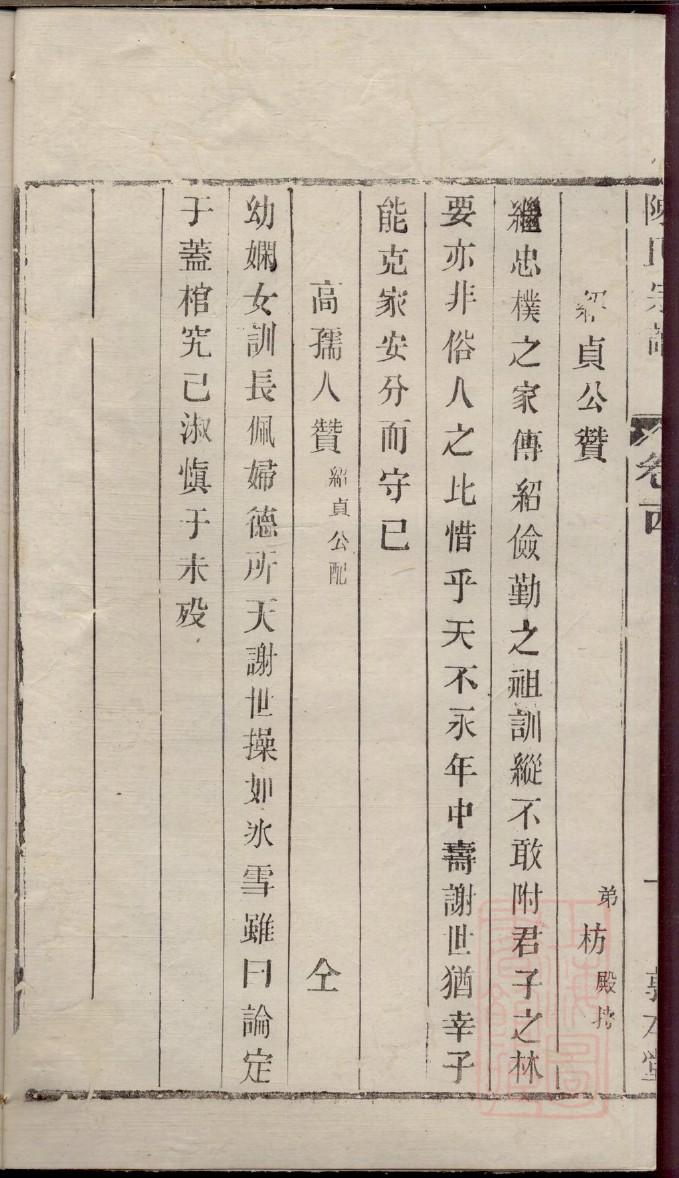 陳氏宗譜 卷十四 敦本堂
紹貞公贊 弟枋殿
繼忠樸之家傳紹儉勤之祖訓縱不敢附君子之林
要亦非俗人之比惜乎天不永年中壽謝世猶幸子
能克家安分而守已
高孺人贊 紹貞公配 仝
幼嫻女訓長佩婦德所天謝世操如氷雪雖曰論定
于蓋棺究已淑慎于未歿